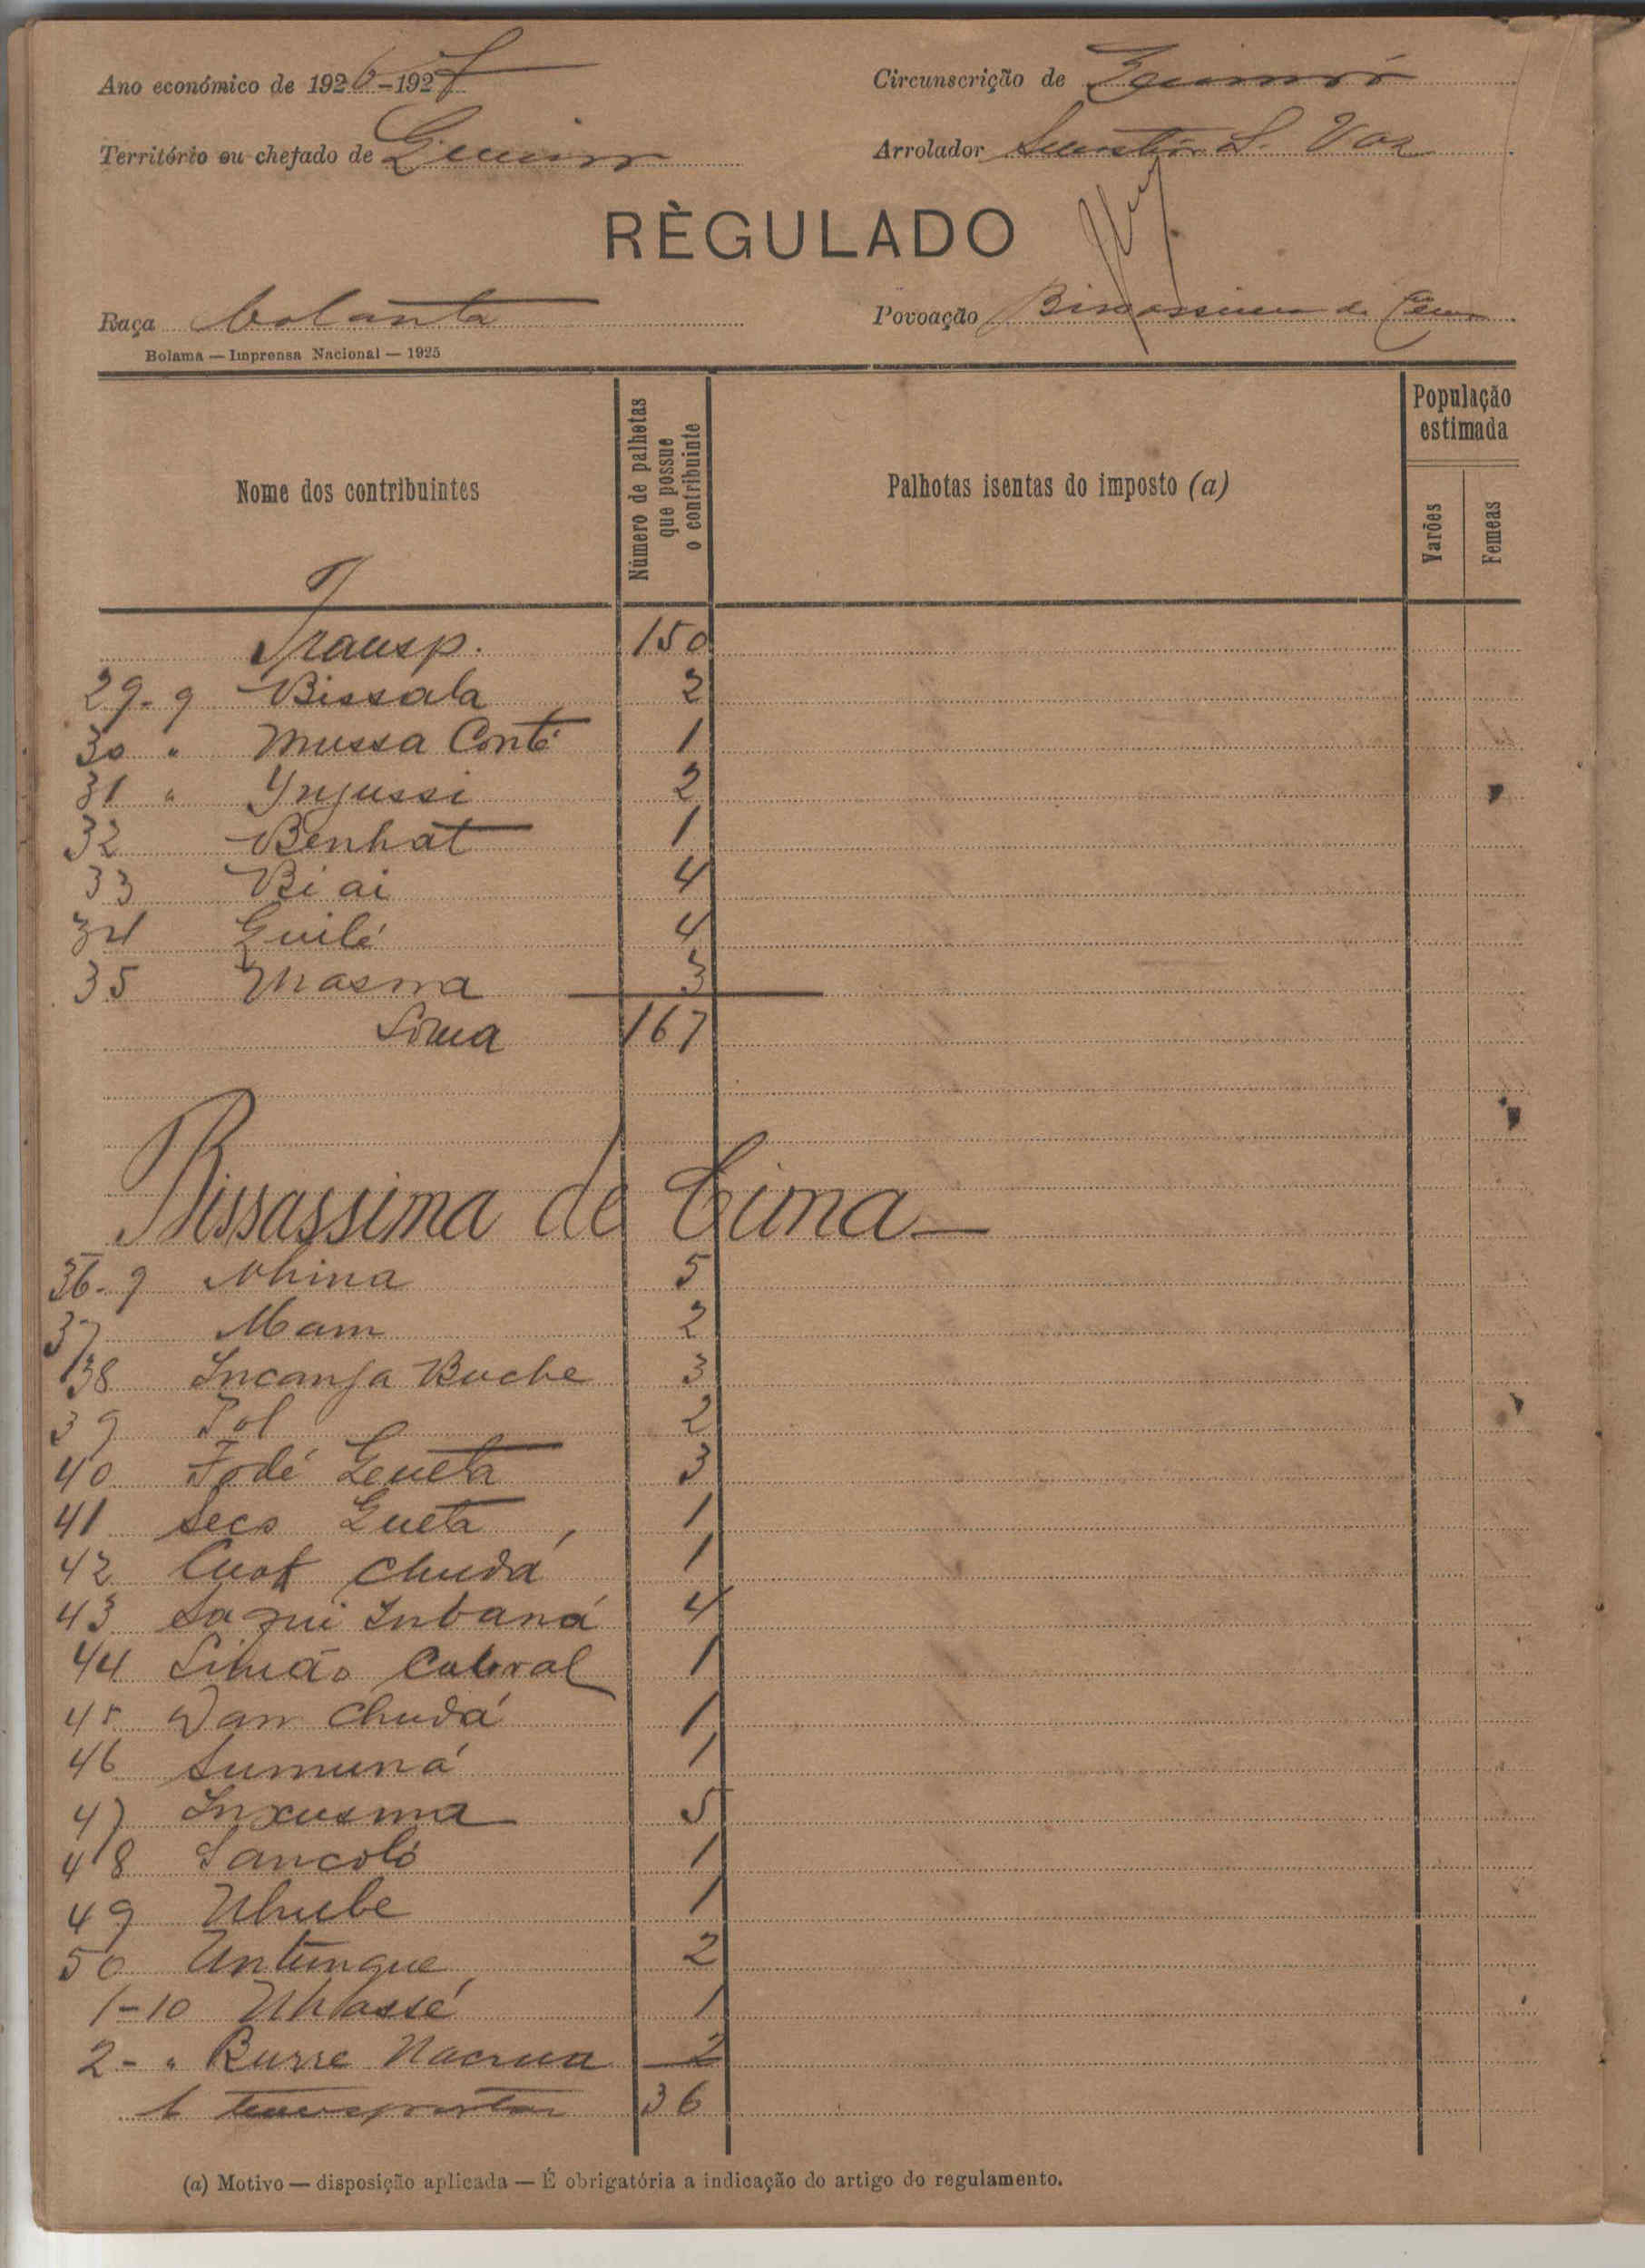 Ano económico de 1926-1927
Circunscrição de
Território ou chefado de
Arrolador S. Vaz
RÈGULADO
Raça balanta
Povoação Bissassima de Cima
Bolama — Imprensa Nacional — 1925
Nome dos contribuintes
Número de palhetas que possue o contribuinte
Palhotas isentas do imposto (a)
População estimada
Varões
Femeas
Transp. 150
29-9 Bissala 2
30 " Mussa Conté 1
31 " Ynjussi 2
32 Benhat 1
33 Biai 4
34 Guilé 4
35 Masma 3
Soma 167
Bissassima de Cima
36-9 Nhina 5
37 Mam 2
38 Incanja Buche 3
39 Tol 2
40 Fodé Gueta 3
41 Seco Gueta 1
42 Cuof Chudá 1
43 Saqui Inbaná 4
44 Simão Cabral 1
45 Dan Chudá 1
46 Sumuná 1
47 Inxusma 5
48 Sancoló 1
49 Nhube 1
50 Untungue 2
1-10 Nhassé 1
2- " Burre Nacrua 2
A transportar 36
(a) Motivo — disposição aplicada — É obrigatória a indicação do artigo do regulamento.